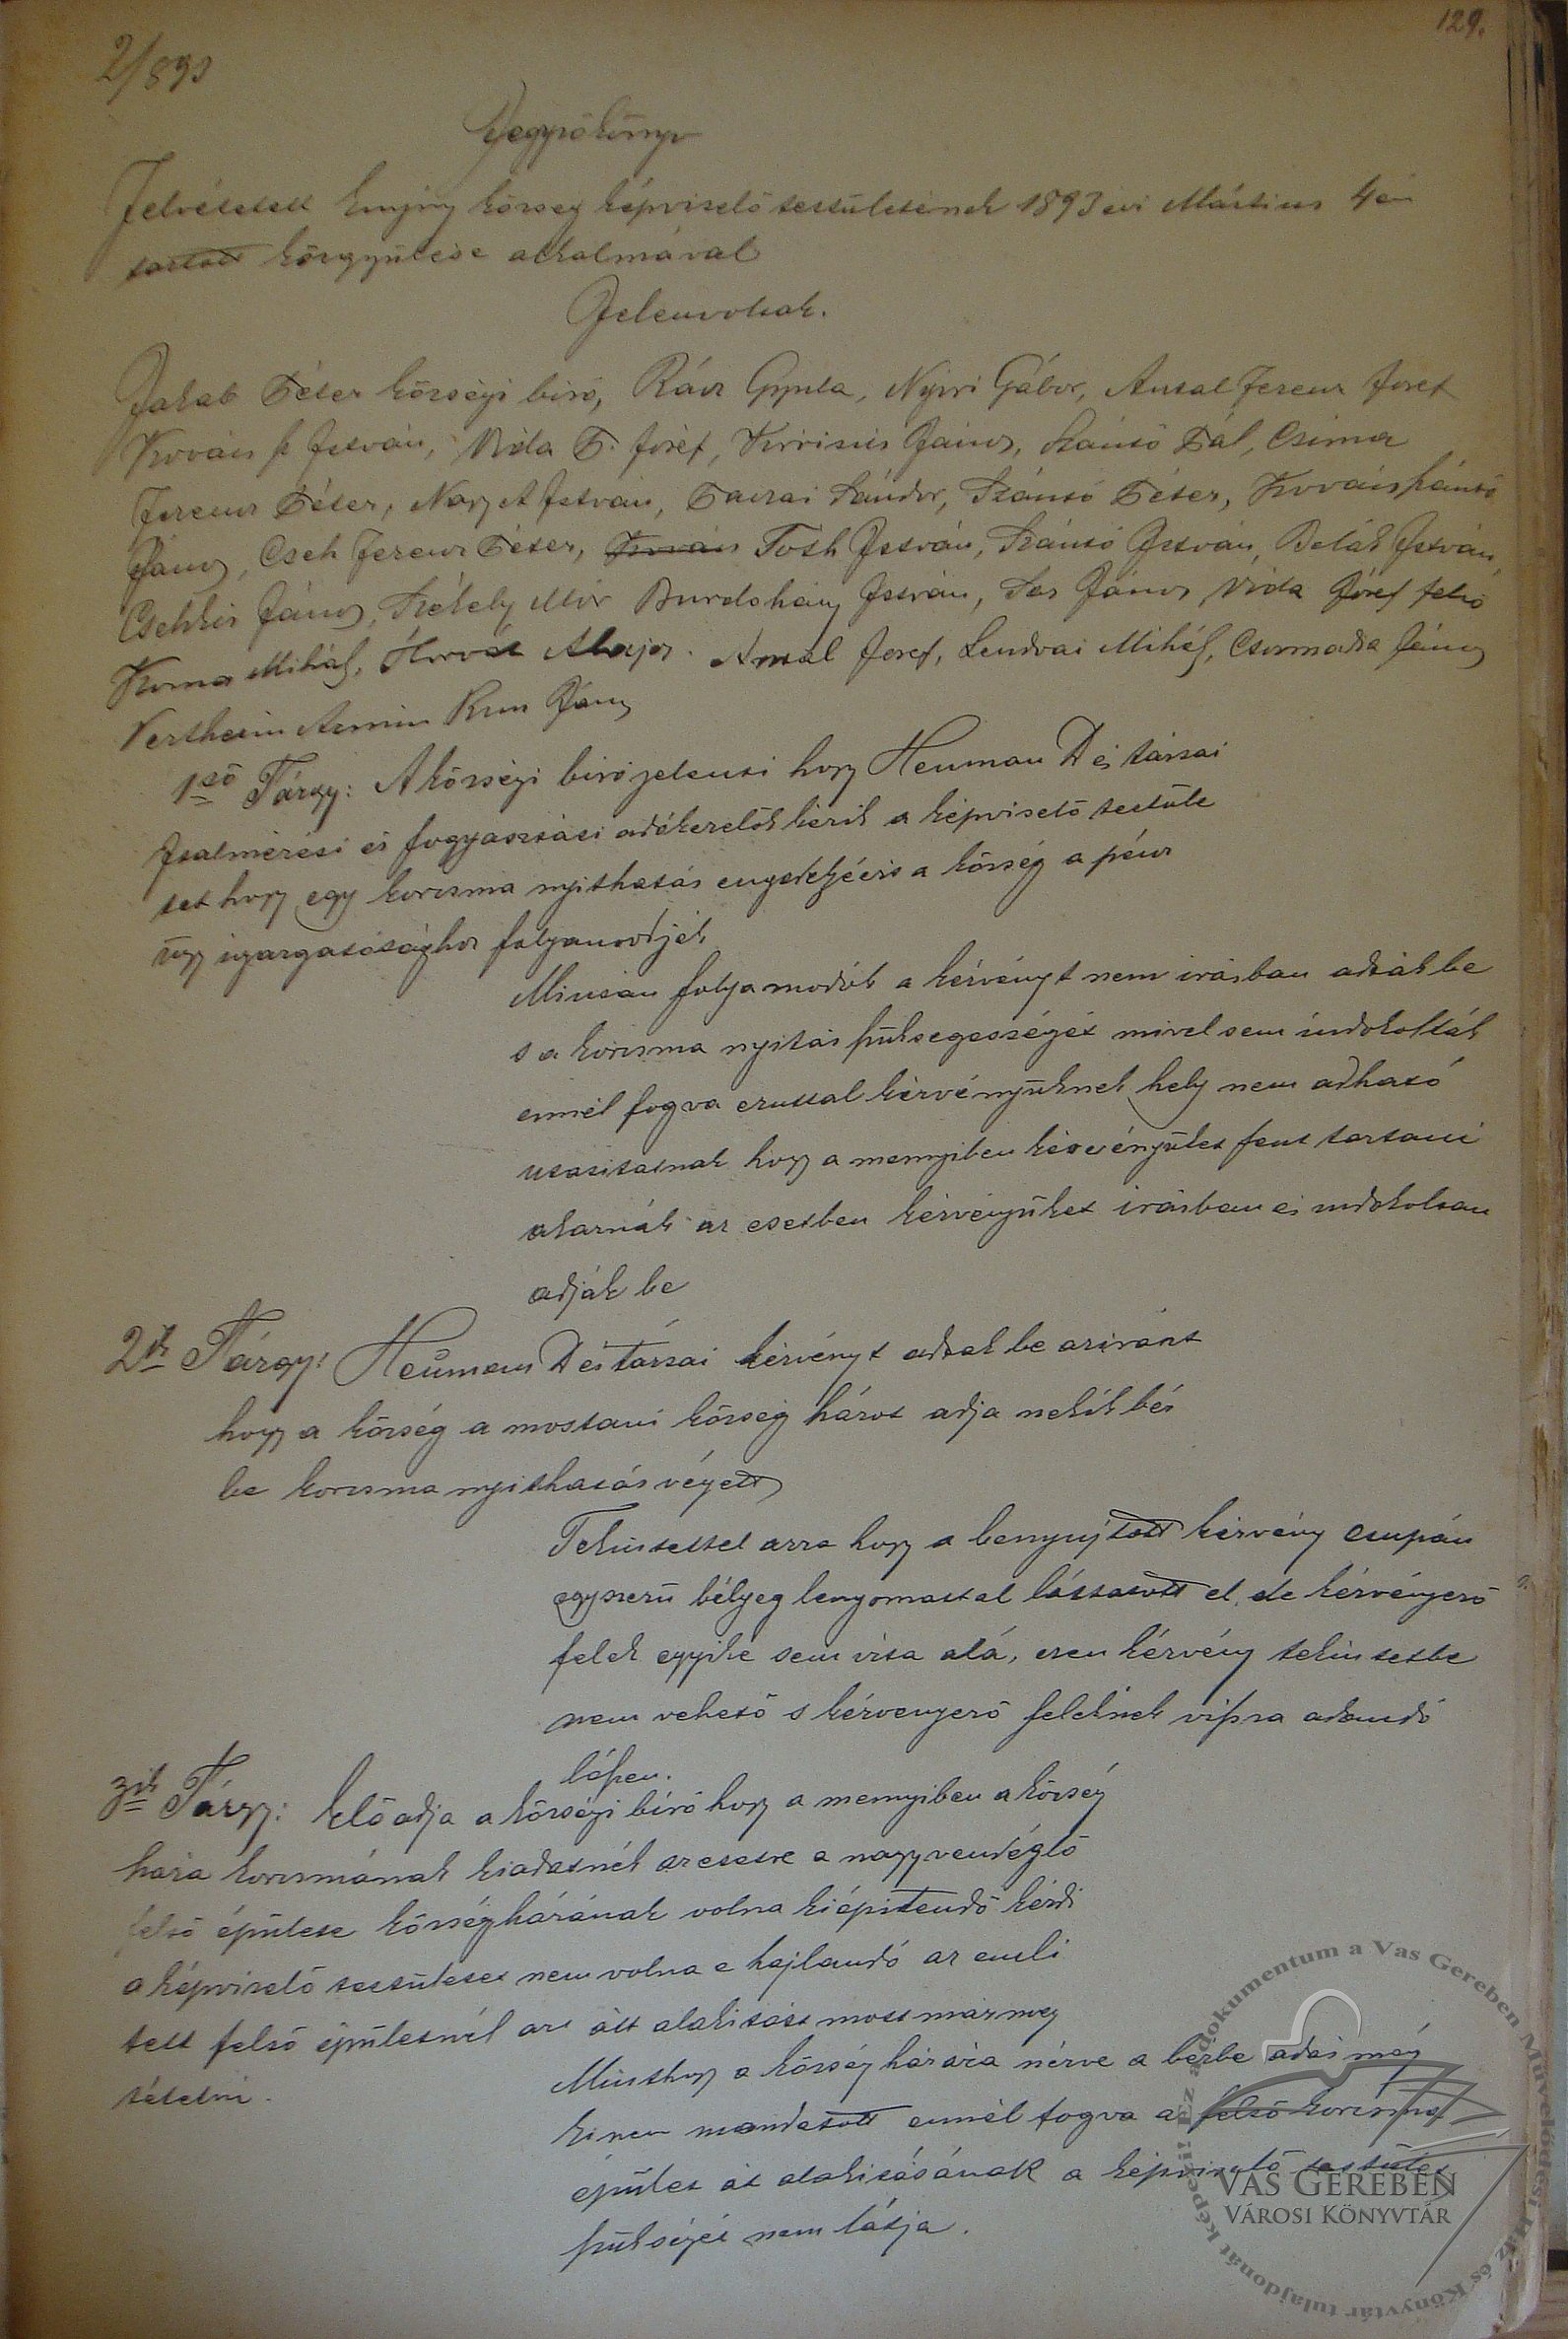 129.
2/893
Jegyzőkönyv
Felvétetett Enying község képviselő testületének 1893 évi Mártius 4én
tartott közgyülése alkalmával
Jelenvoltak.
Jakab Péter községi biró, Rácz Gyula, Nyiri Gábor, Antal Ferencz Jozef
Kovács István, Vida P. József, János, Szántó Pál, Csima
Ferencz Péter, Nagy A István, Sándor, Szántó Péter, Kovács
János, Cseh Ferencz Péter, Tóth István, Szántó István, Belák István,
János, Székely Mór István, Sas János Vida József felső
Mihály, Horvát Alajos. Antal Jozef, Lendvai Mihály, Csizmadia János
Vertheim Armin Kun János
1ső Tárgy: A községi biró jelenti hogy Heuman D és társai
Italmérési és fogyasztási adókezelők kérik a képviselő testüle
tet hogy egy korcsma nyithatás engedélyéért a község a pénz
ügy igazgatósághoz folyamodjék
Miután folyamodók a kérvényt nem irásban adták be
s a korcsma nyitás szükségességét mivel sem indokolták
ennél fogva ezuttal kérvényüknek hely nem adható
utasitatnak hogy a mennyiben kérvényüket fent tartani
akarnák az esetben kérvényüket irásban és indokoltan
adják be
2ik Tárgy: Heümann D és társai kérvényt adtak be aziránt
hogy a község a mostani község házat adja nekik bér
be korcsma nyithatás végett
Tekintettel arra hogy a benyujtott kérvény csupán
egyszerü bélyeg lenyomattal láttatott el, de kérvényező
felek egyike sem irta alá, ezen kérvény tekintetbe
nem vehető s kérvenyező feleknek viszsza adandó
lészen.
3ik Tárgy: Előadja a községi biró hogy a mennyiben a község
háza korcsmának kiadatnék az esetre a nagyvendéglő
felső épülete községházának volna kiépitendő kérdi
a képviselő testületet nem volna e hajlandó az emli
tett felső épületnél az átt alakitást most már meg
tétetni.
Minthogy a község házára nézve a bérbe adás még
ki nem mondatott ennél fogva a felső korcsma
épület át alakitásának a képviselő testület
szükségét nem látja.
Ez a dokumentum a Vas Gereben Művelődési Ház és Könyvtár tulajdonát képezi!
VAS GEREBEN
VÁROSI KÖNYVTÁR